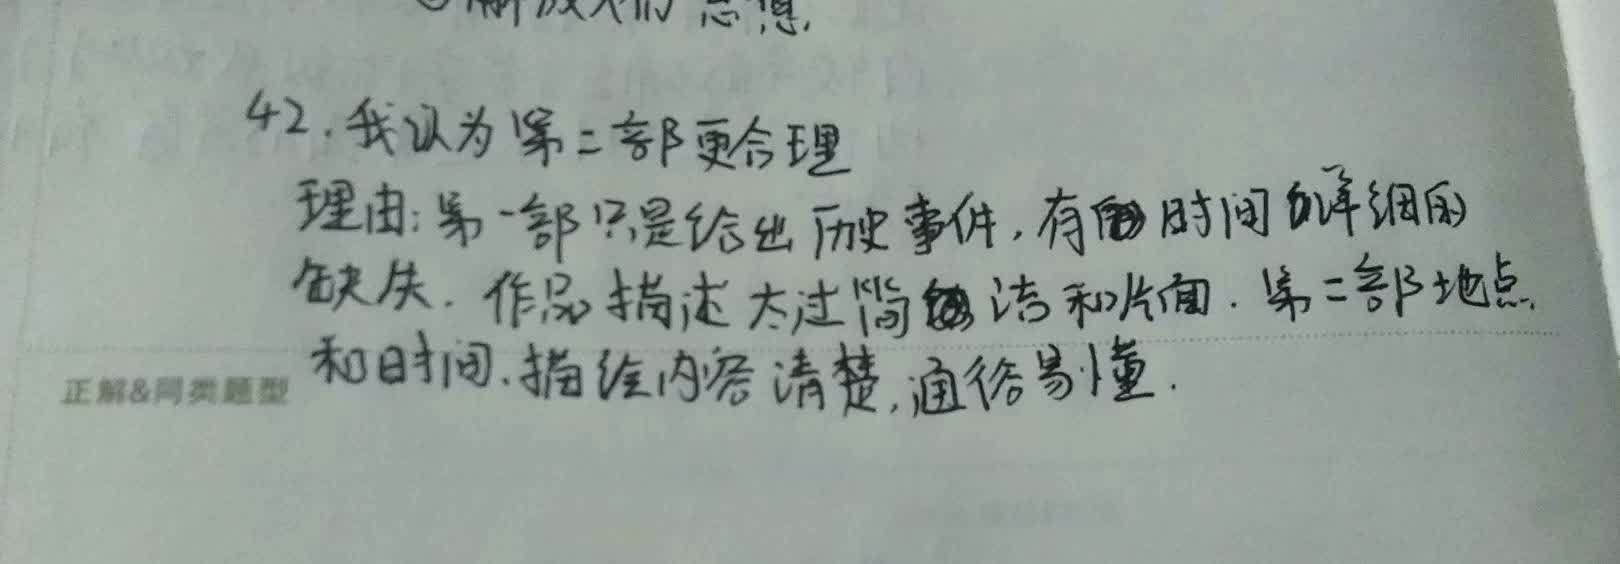 解放人们思想.
42.我认为第二部更合理
理由:第一部只是给出历史事件,有时间详细的
缺失.作品描述太过简洁和片面.第二部地点
和时间.描绘内容清楚,通俗易懂.
正解&同类题型